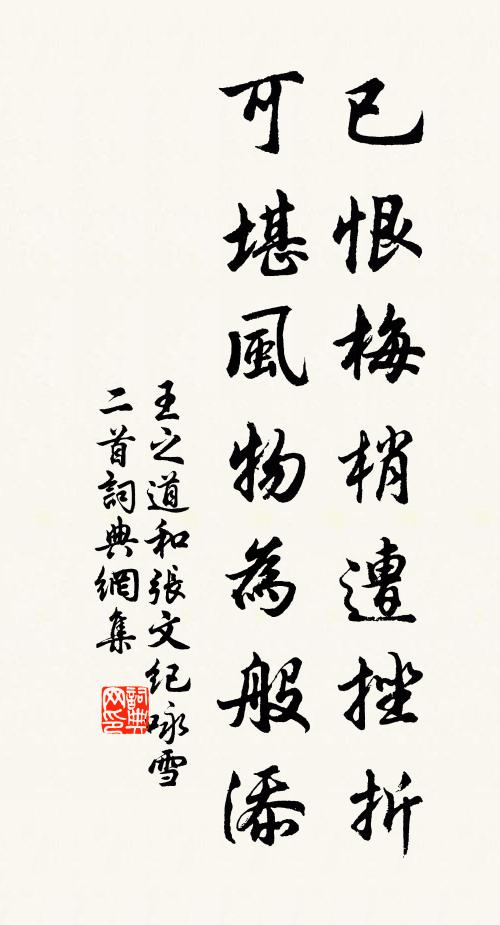 已恨梅梢遭挫折
可堪風物為般添
王之道和張文紀咏雪
二首詞典網集
詞典
网印